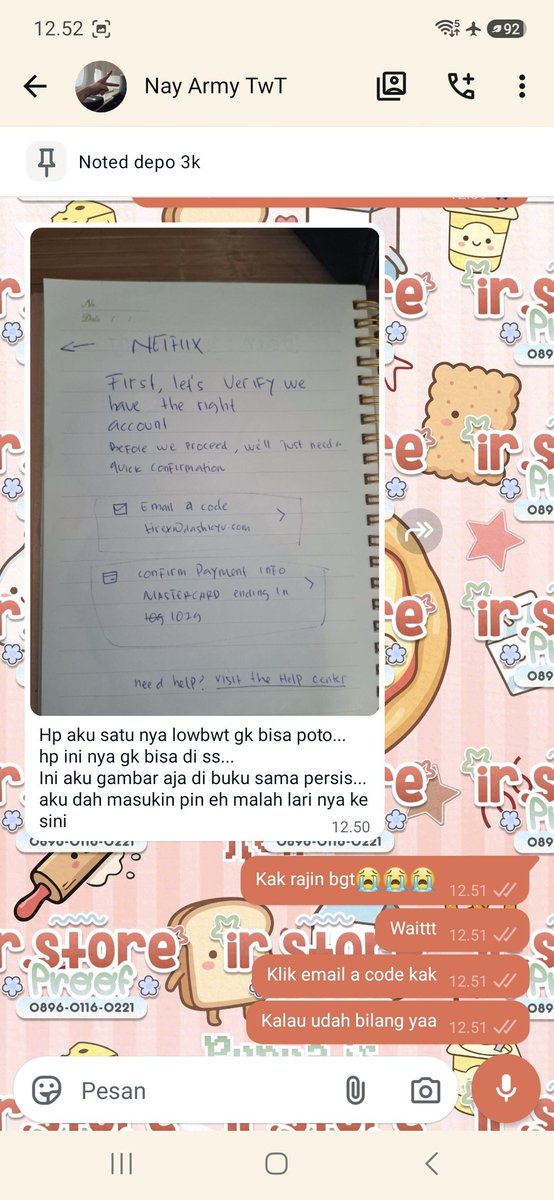 12.52
5
92
Nay Army TwT
Noted depo 3k
No.
Date / /
NETFLIX
First, let's verify we
have the right
account
Before we proceed, we'll just need a
quick confirmation
Email a code
confirm Payment info
MASTERCARD ending in
1029
need help? visit the Help center
Hp aku satu nya lowbwt gk bisa poto...
hp ini nya gk bisa di ss...
Ini aku gambar aja di buku sama persis...
aku dah masukin pin eh malah lari nya ke
sini
12.50
0896-0116-0221
Kak rajin bgt😭😭😭
12.51
Waittt
12.51
ir.store
Proof
0896-0116-0221
Klik email a code kak
12.51
Kalau udah bilang yaa
12.51
Pesan